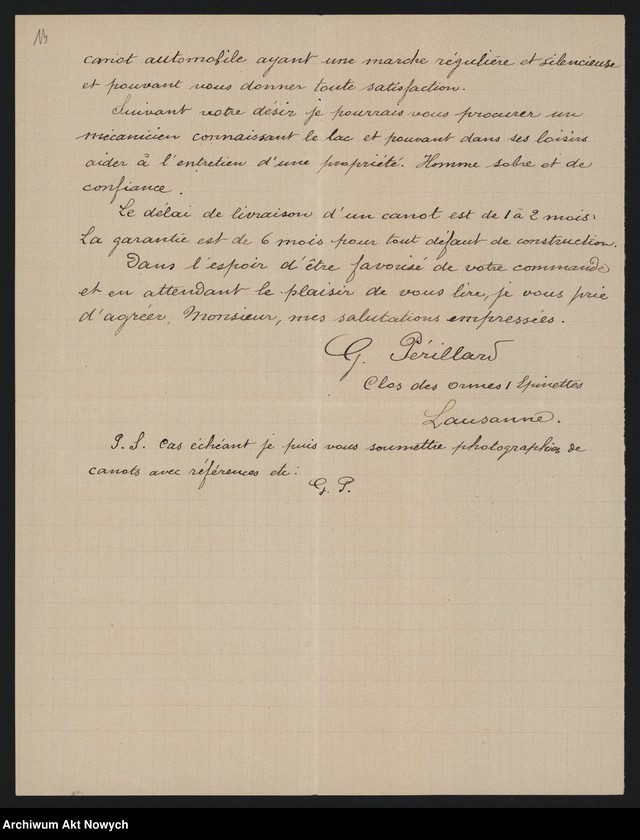 13
canot automobile ayant une marche régulière et silencieuse
et pouvant vous donner toute satisfaction.
Suivant votre désir je pourrais vous procurer un
mécanicien connaissant le lac et pouvant dans ses loisirs
aider à l'entretien d'une propriété. Homme sobre et de
confiance.
Le délai de livraison d'un canot est de 1 à 2 mois.
La garantie est de 6 mois pour tout défaut de construction.
Dans l'espoir d'être favorisé de votre commande
et en attendant le plaisir de vous lire, je vous prie
d'agréer, Monsieur, mes salutations empressées.
G. Périllard
Clos des ormes / Epinettes
Lausanne.
P. S. Cas échéant je puis vous soumettre photographies de
canots avec références etc:
G. P.
Archiwum Akt Nowych